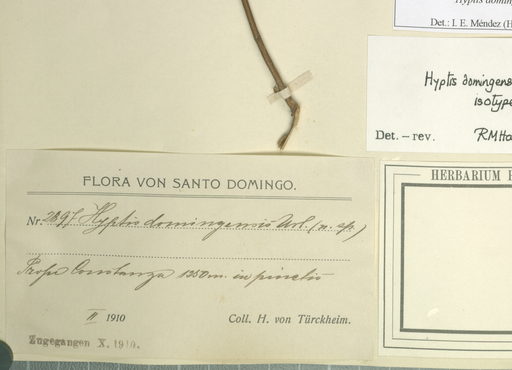 Hyptis doming
Det.: I. E. Méndez (H
Hyptis domingens
isotype
Det. – rev. RMHa
FLORA VON SANTO DOMINGO.
Nr. 2897 Hyptis domingensis Url. (n. sp.)
Prope Constanza 1250 m. in pinetis
II 1910
Coll. H. von Türckheim.
Zugegangen X. 1910.
HERBARIUM